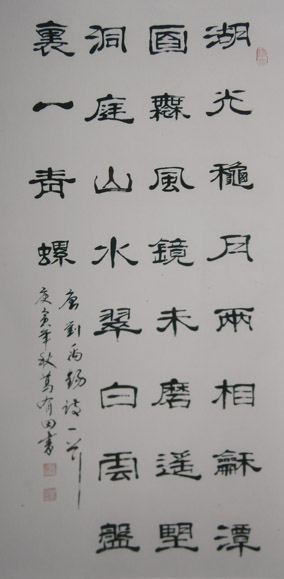 湖光穐月兩相龢潭
面無風鏡未磨遙望
洞庭山水翠白雲盤
裏一青螺
唐劉禹錫詩一首
庚寅年秋葛有田書